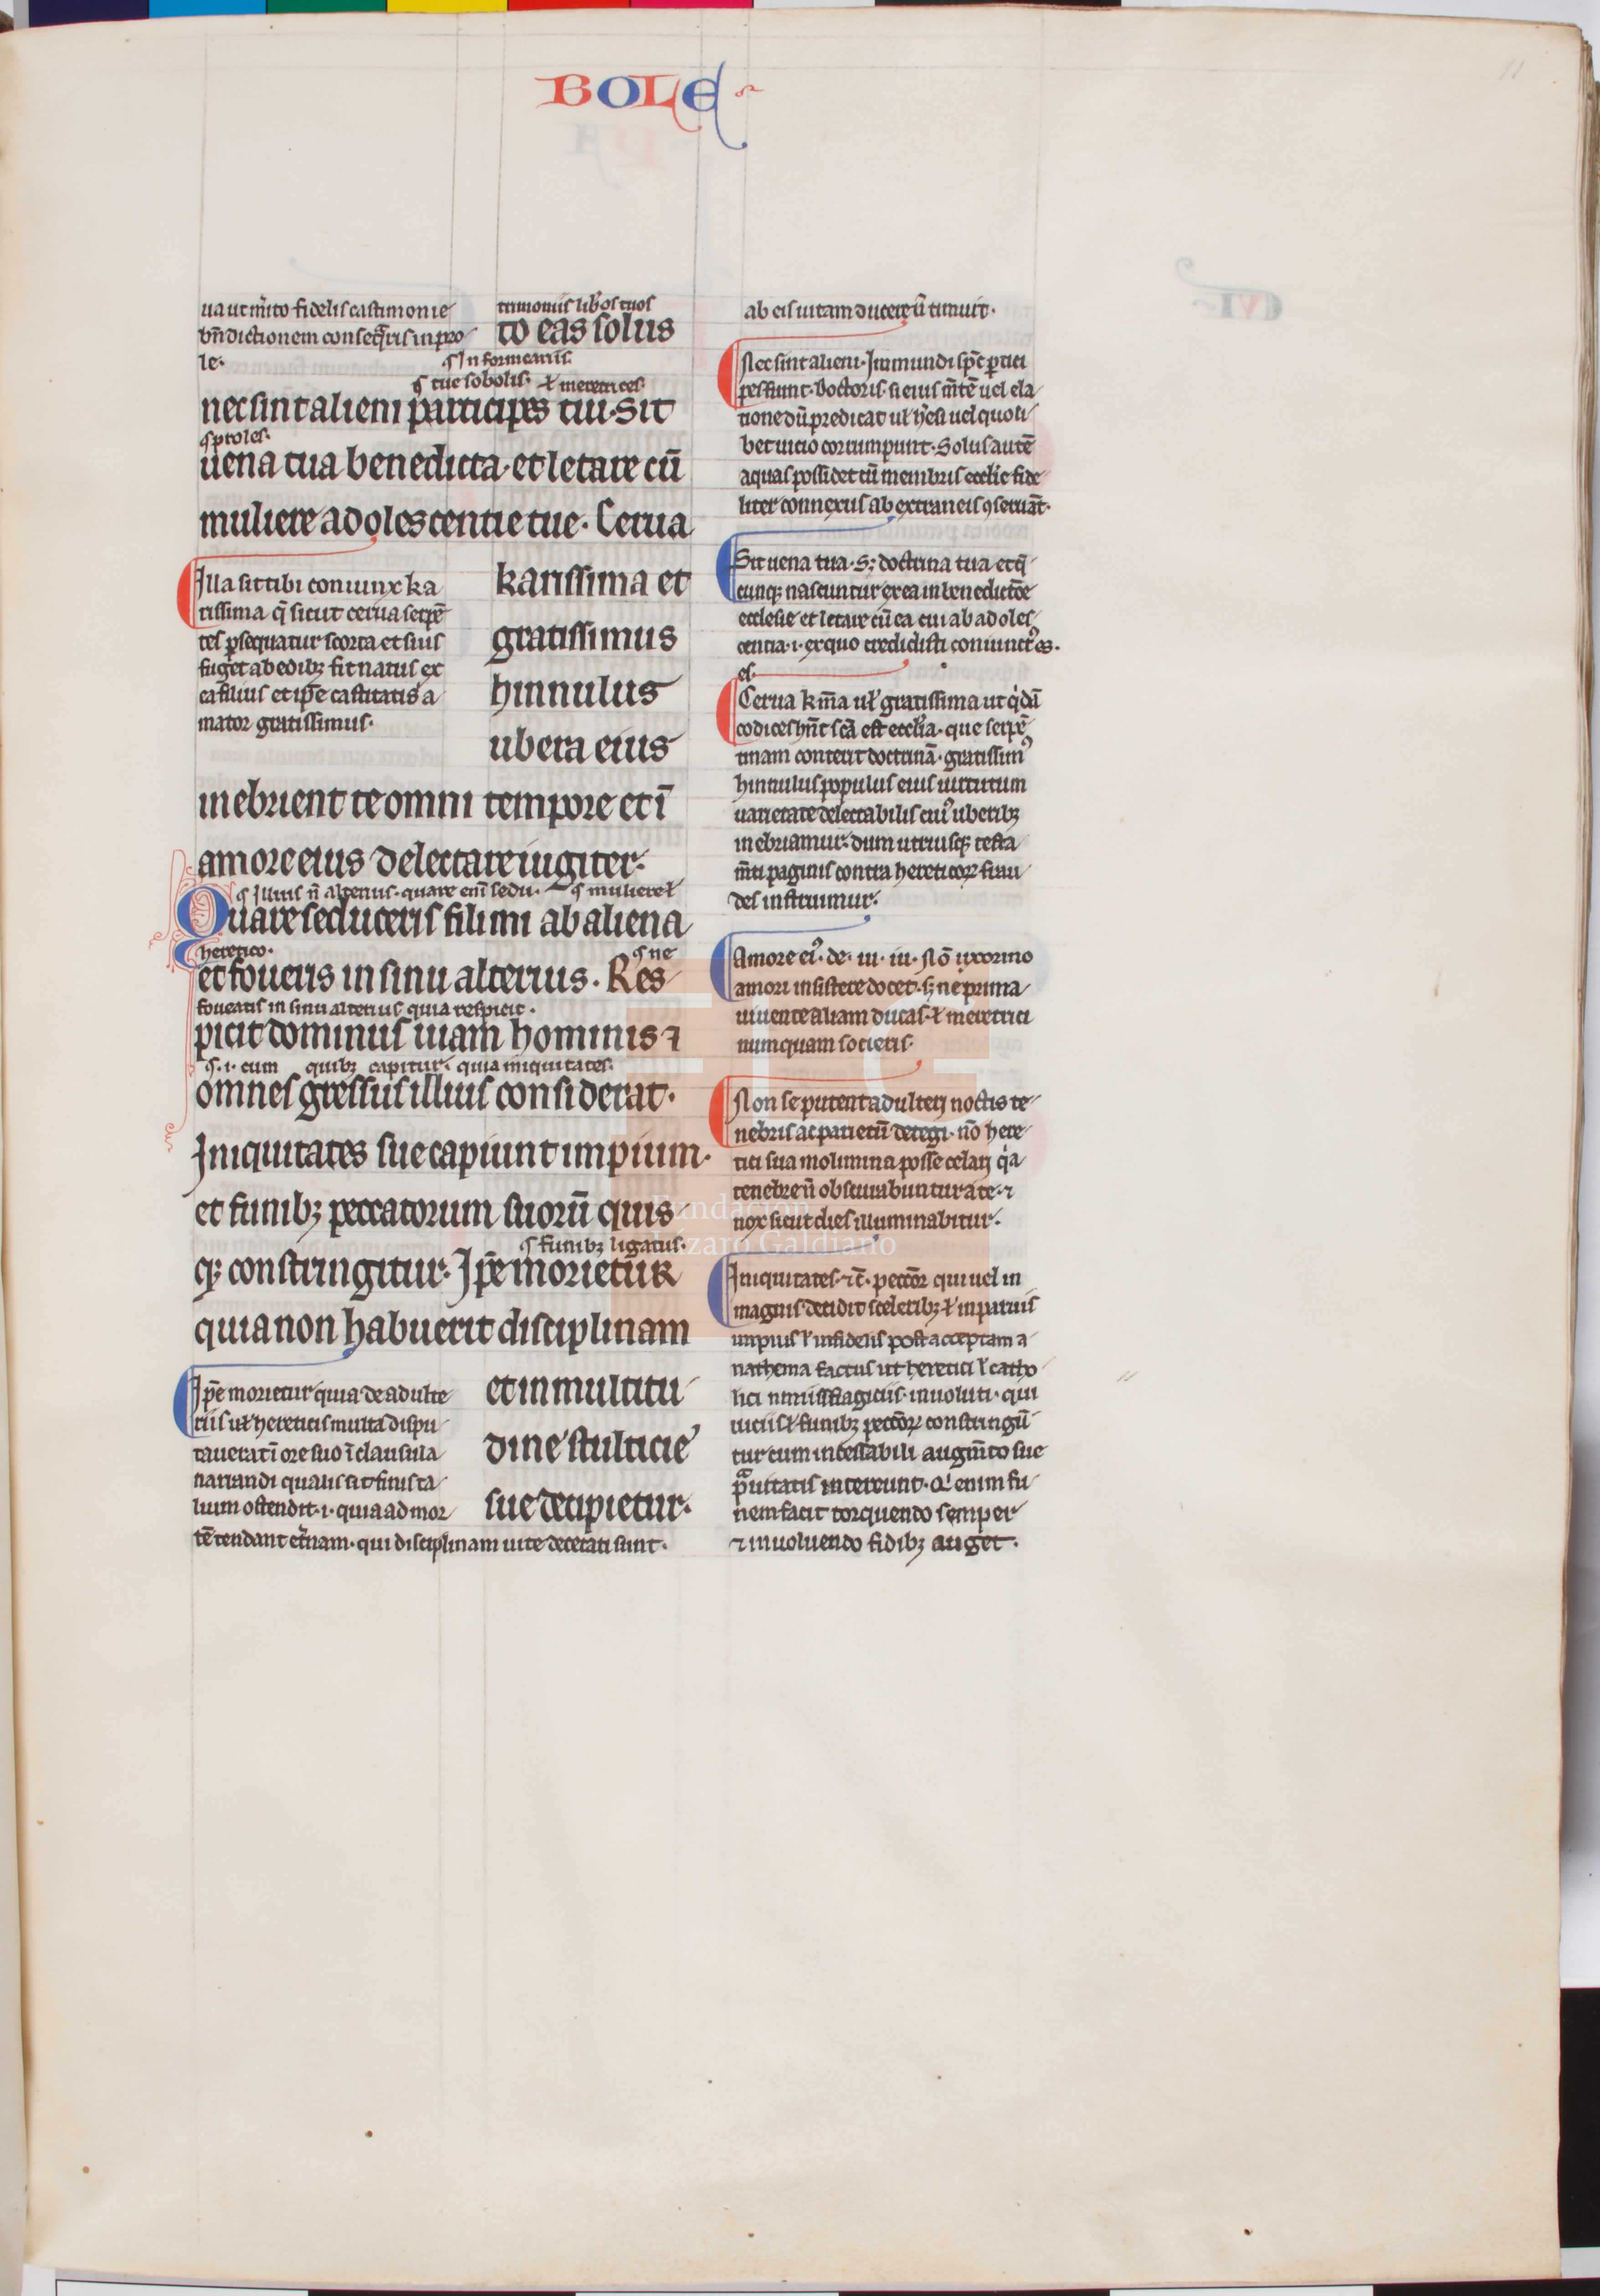 BOLE
11
ua ut mito fidelis castimonie
bn̄dictionem conseq̄ris in pro
le·
trimoniis lib'os tuos
to eas solus
¶ In formeariis·
¶ tue sobolis· ł meretrices·
nec sint alieni participes tui· Sit
¶ proles·
uena tua benedicta· et letare cū
muliere adolescentie tue· Cerua
Illa sit tibi coniunx ka
rissima q̄ sicut cerua serpē
tes ꝑsequatur scorta et suis
fuget ab edibꝫ sit natus ex
ea filius et ip̄e castitatis a
mator gratissimus·
karissima et
gratissimus
hinnulus
ubera eius
inebrient te omni tempore et ī
amore eius delectare iugiter·
¶ Illius n̄ alterius· quare eni sedu· ¶ muliere ł
Quare seduceris fili mi ab aliena
heretico· ¶ ne
et foueris in sinu alterius· Res
foueatis in sinu alterius quia respicit·
picit dominus uiam hominis ⁊
¶·i· cum quibꝫ capitur· quia iniquitates·
omnes gressus illius considerat·
Iniquitates sue capiunt impium·
et funibꝫ peccatorum suorū quis
¶ funibꝫ ligatus·
qꝫ constringitur· Ip̄e morietur
quia non habuerit disciplinam
Ip̄e morietur quia de adulte
riis ul' hereticis multa dispu
tauerat ī ore suo ī clausula
narrandi qualis sit finis ta
lium ostendit·i· quia ad mor
tē tendant et'nam· qui disciplinam uite decerati sunt·
et in multitu
dine stulticie
sue decipietur·
ab eis uitam ducere ū timuit·
Nec sint alieni· Inmundi sp̄c ꝑtici
pes fiunt· Doctoris· si eius m̄tē uel ela
tione dū predicat ul' h'esi uel quoli
bet uicio corrumpunt· Solus autē
aquas possidet cū membris eccl'ie fide
liter connexus ab extraneis ꝯseruāt·
Sit uena tua· S; doctrina tua et q̄
cunqꝫ nascuntur ex ea in benedictōe
ecclesie et letare cū ea cui ab adoles
centia·i· ex quo credidisti coniunct' es·
es·
Cerua km̄a ul' gratissima ut q'dā
codices hn̄t sc̄a est eccl'ia· que serpē
tinam conterit doctrinā· gratissim'
hinnulus populus eius uirtutum
uarietate delectabilis cui' uberibꝫ
inebriamur· dum utriusqꝫ testa
m̄ti paginis contra hereticoꝝ frau
des instruimur·
Amore ei'· de· iu· iu· Nō uxorino
amori insistere docet· sꝫ ne prima
uiuente aliam ducas· ł meretrici
numquam socieris·
Non se putent adulterij noctis te
nebris ac parietū detegi· nō here
tici sua molimina posse celari q'a
tenebre n̄ obscurabuntur a te· ⁊
nox sicut dies illuminabitur·
Iniquitates· ⁊c̄· peccōr qui uel in
magnis decidit sceleribꝫ ł in paruis
impius ł infidelis post acceptam a
nathema factus ut heretici ł catho
lici nimiis flagiciis· inuoluti· qui
uiciis ł funibꝫ peccōꝝ constringū
tur cum incessabili augm̄to sue
prauitatis intereunt· Q' enim fu
nem facit torquendo semper
⁊ inuoluendo fidibꝫ auget·
Fundación
Lázaro Galdiano